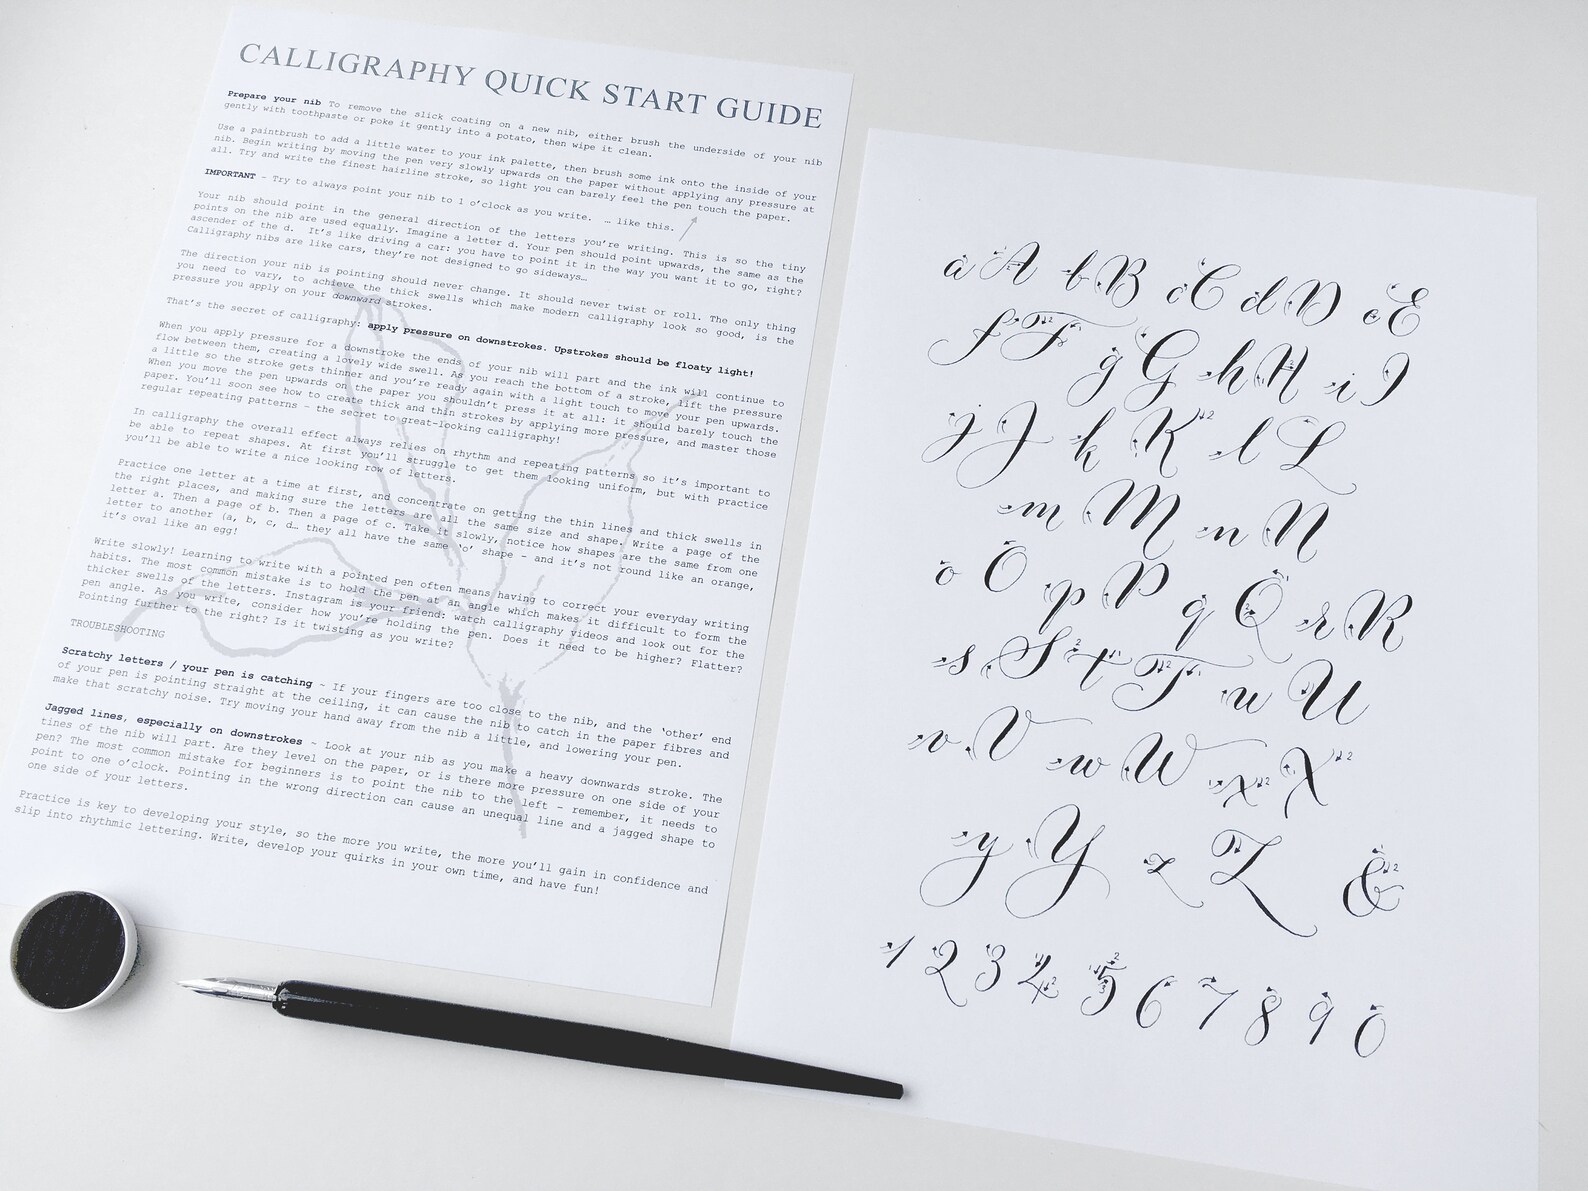 CALLIGRAPHY QUICK START GUIDE
Prepare your nib To remove the slick coating on a new nib, either brush the underside of your nib
gently with toothpaste or poke it gently into a potato, then wipe it clean.
Use a paintbrush to add a little water to your ink palette, then brush some ink onto the inside of your
nib. Begin writing by moving the pen very slowly upwards on the paper without applying any pressure at
all. Try and write the finest hairline stroke, so light you can barely feel the pen touch the paper.
IMPORTANT – Try to always point your nib to 1 o’clock as you write. … like this.
Your nib should point in the general direction of the letters you’re writing. This is so the tiny
points on the nib are used equally. Imagine a letter d. Your pen should point upwards, the same as the
ascender of the d. It’s like driving a car: you have to point it in the way you want it to go, right?
Calligraphy nibs are like cars, they’re not designed to go sideways…
The direction your nib is pointing should never change. It should never twist or roll. The only thing
you need to vary, to achieve the thick swells which make modern calligraphy look so good, is the
pressure you apply on your downward strokes.
That’s the secret of calligraphy: apply pressure on downstrokes. Upstrokes should be floaty light!
When you apply pressure for a downstroke the ends of your nib will part and the ink will continue to
flow between them, creating a lovely wide swell. As you reach the bottom of a stroke, lift the pressure
a little so the stroke gets thinner and you’re ready again with a light touch to move your pen upwards.
When you move the pen upwards on the paper you shouldn’t press it at all: it should barely touch the
paper. You’ll soon see how to create thick and thin strokes by applying more pressure, and master those
regular repeating patterns – the secret to great-looking calligraphy!
In calligraphy the overall effect always relies on rhythm and repeating patterns so it’s important to
be able to repeat shapes. At first you’ll struggle to get them looking uniform, but with practice
you’ll be able to write a nice looking row of letters.
Practice one letter at a time at first, and concentrate on getting the thin lines and thick swells in
the right places, and making sure the letters are all the same size and shape. Write a page of the
letter a. Then a page of b. Then a page of c. Take it slowly, notice how shapes are the same from one
letter to another (a, b, c, d… they all have the same ‘o’ shape – and it’s not round like an orange,
it’s oval like an egg!
Write slowly! Learning to write with a pointed pen often means having to correct your everyday writing
habits. The most common mistake is to hold the pen at an angle which makes it difficult to form the
thicker swells of the letters. Instagram is your friend: watch calligraphy videos and look out for the
pen angle. As you write, consider how you’re holding the pen. Does it need to be higher? Flatter?
Pointing further to the right? Is it twisting as you write?
TROUBLESHOOTING
Scratchy letters / your pen is catching – If your fingers are too close to the nib, and the ‘other’ end
of your pen is pointing straight at the ceiling, it can cause the nib to catch in the paper fibres and
make that scratchy noise. Try moving your hand away from the nib a little, and lowering your pen.
Jagged lines, especially on downstrokes – Look at your nib as you make a heavy downwards stroke. The
tines of the nib will part. Are they level on the paper, or is there more pressure on one side of your
pen? The most common mistake for beginners is to point the nib to the left – remember, it needs to
point to one o’clock. Pointing in the wrong direction can cause an unequal line and a jagged shape to
one side of your letters.
Practice is key to developing your style, so the more you write, the more you’ll gain in confidence and
slip into rhythmic lettering. Write, develop your quirks in your own time, and have fun!
a A b B c C d D e E
f F g G h H i I
j J k K l L
m M n N
o O p P q Q r R
s S t T u U
v V w W x X
y Y z Z &
1 2 3 4 5 6 7 8 9 0